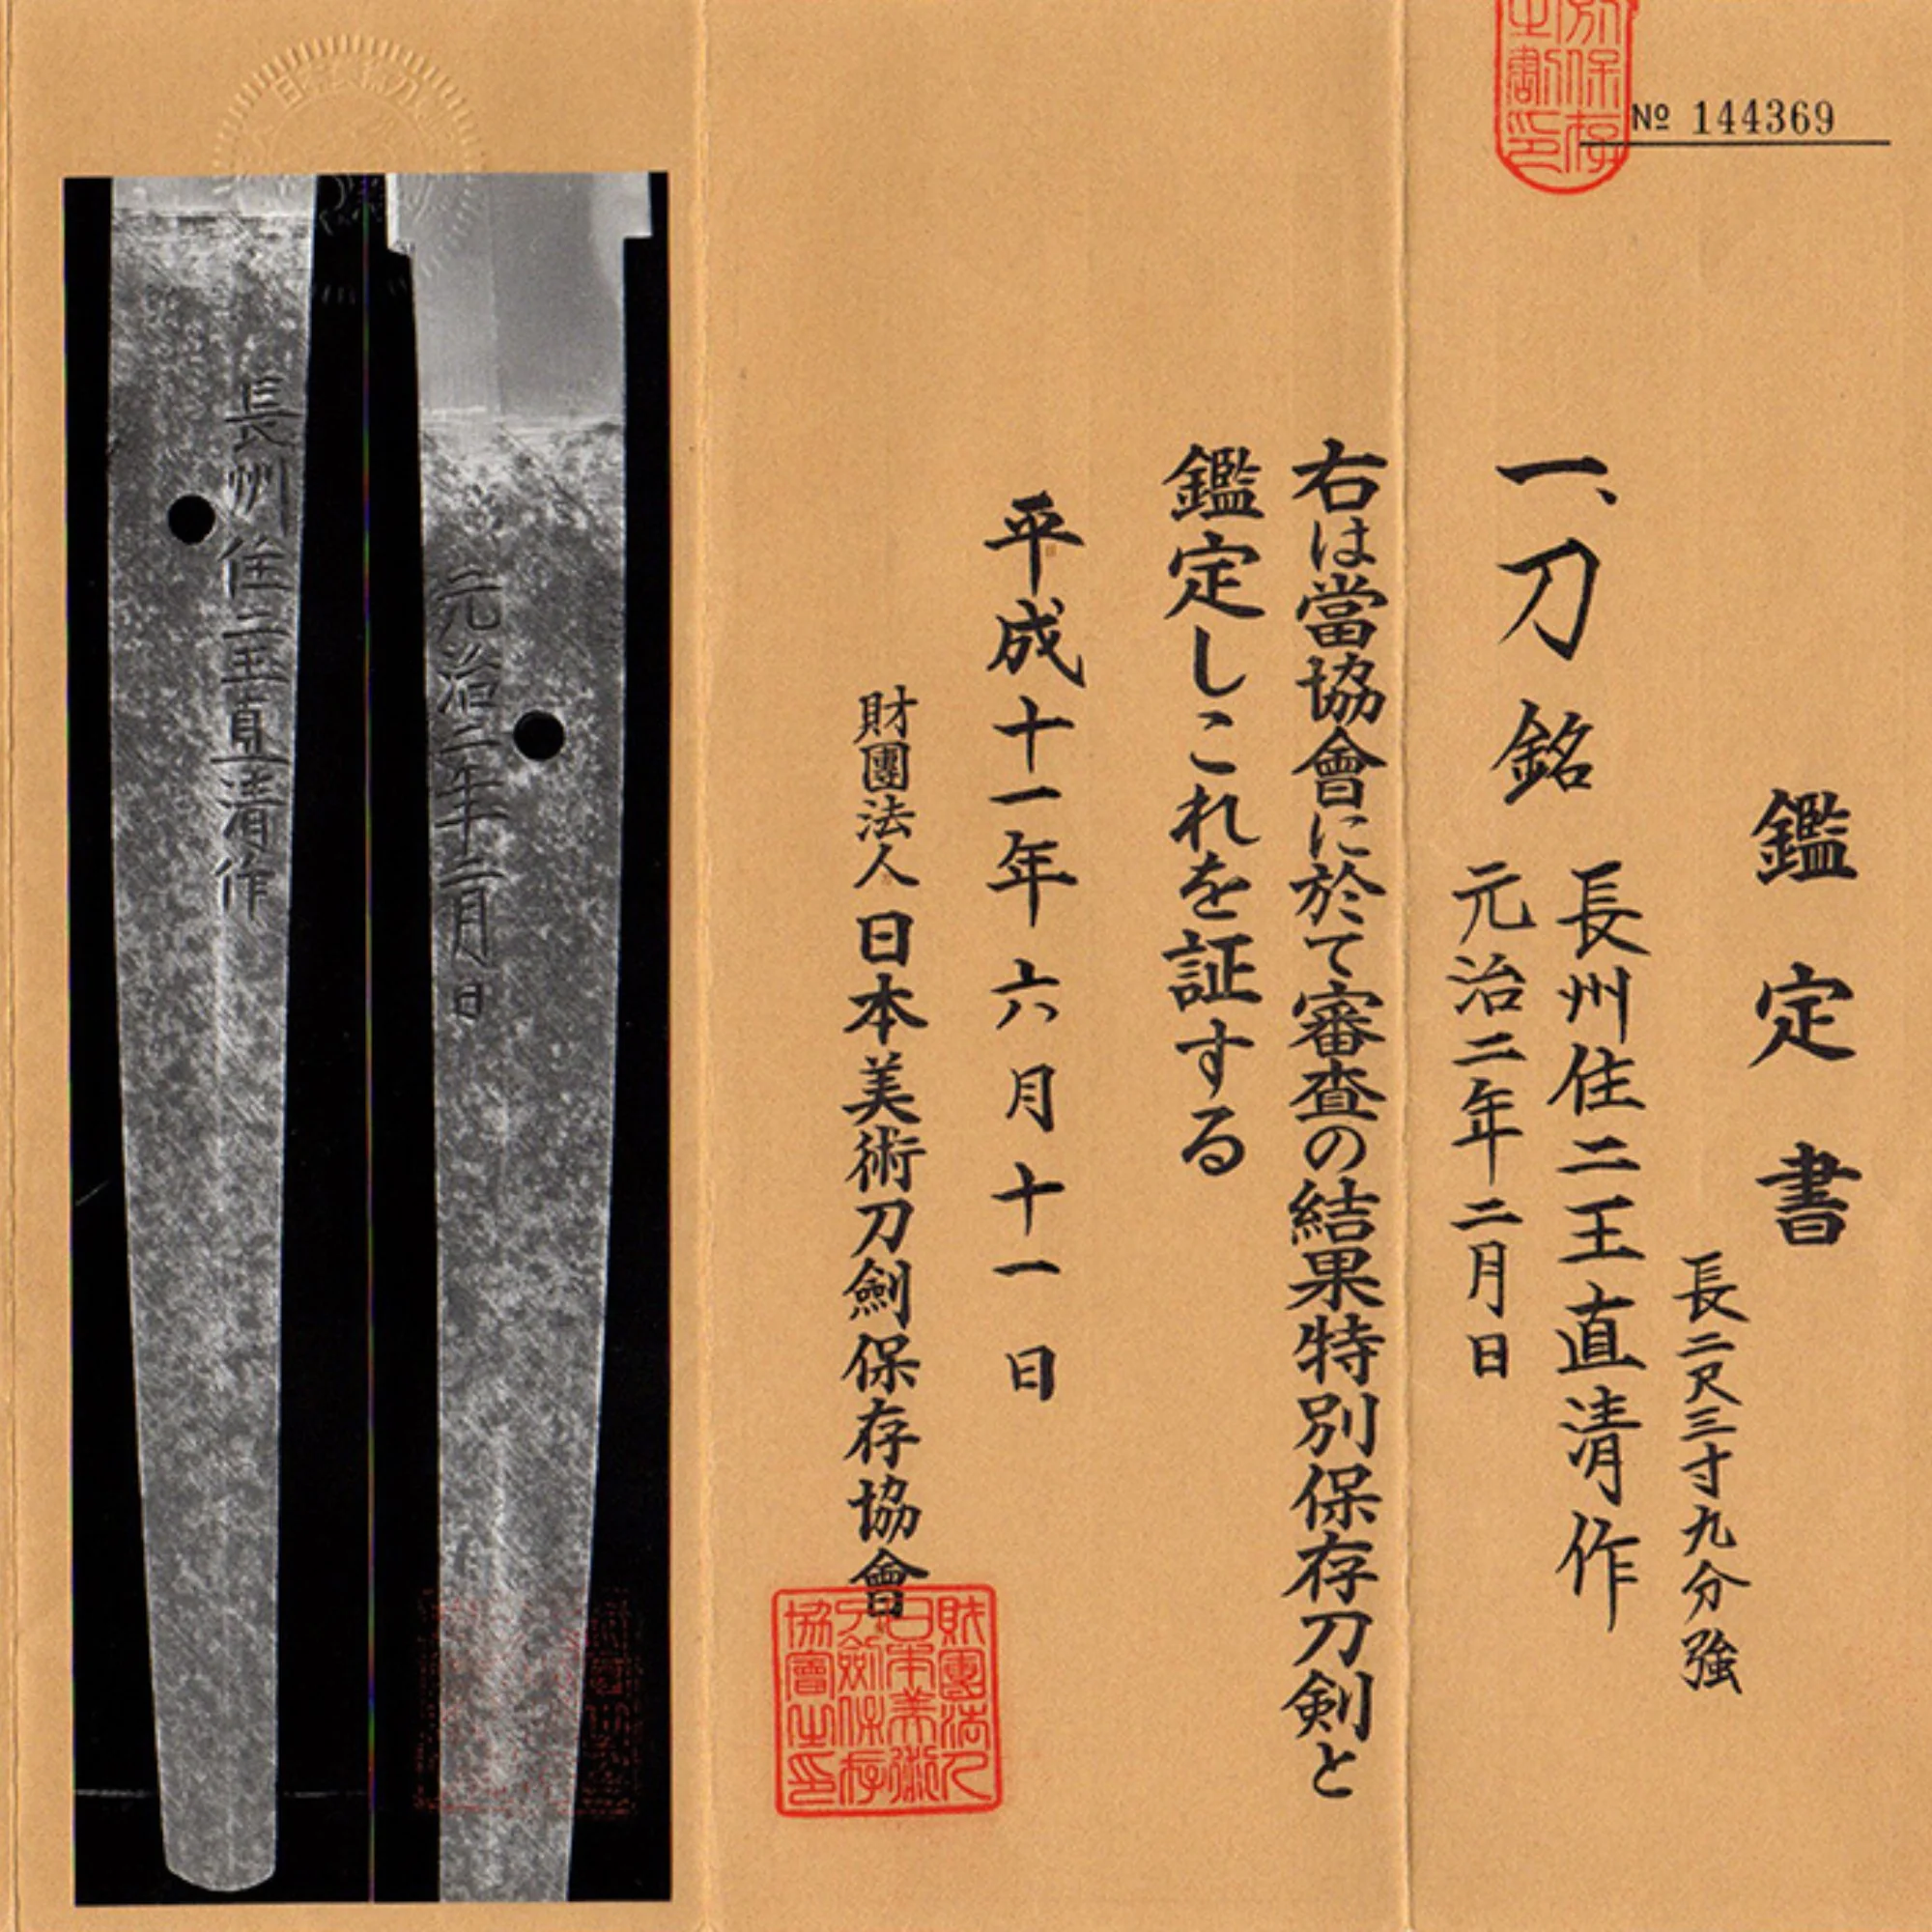 № 144369
鑑定書
長二尺三寸九分強
一、刀 銘
長州住二王直清作
元治二年二月日
右は當協會に於て審査の結果特別保存刀剣と
鑑定しこれを証する
平成十一年六月十一日
財團法人日本美術刀劍保存協會
財團法人
日本美術
刀劍保存
協會之印
長州住二王直清作
元治二年二月日